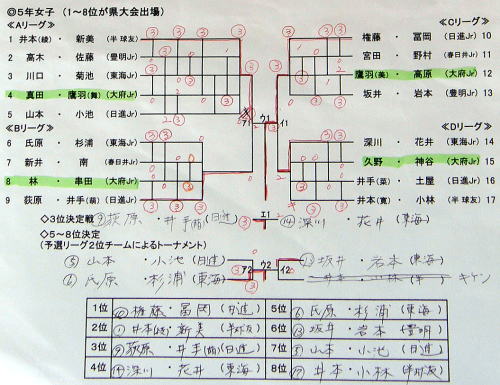 ◎5年女子 (1～8位が県大会出場)
≪Aリーグ≫
1 井本(綾) ・ 新美 (半 球友)
2 高木 ・ 佐藤 (豊明Jr)
3 川口 ・ 菊池 (東海Jr)
4 真田 ・ 鷹羽(舞) (大府Jr)
5 山本 ・ 小池 (日進Jr)
≪Bリーグ≫
6 氏原 ・ 杉浦 (東海Jr)
7 新井 ・ 南 (春日井Jr)
8 林 ・ 串田 (大府Jr)
9 荻原 ・ 井手(萌) (日進Jr)
≪Cリーグ≫
権藤 ・ 冨岡 (日進Jr) 10
宮田 ・ 野村 (春日井Jr) 11
鷹羽(美) ・ 高原 (大府Jr) 12
坂井 ・ 岩本 (豊明Jr) 13
≪Dリーグ≫
深川 ・ 花井 (東海Jr) 14
久野 ・ 神谷 (大府Jr) 15
井手(菜) ・ 土屋 (日進Jr) 16
井本(寛) ・ 小林 (半 球友) 17
ア1 ウ1 イ1
◇3位決定戦 ⑨荻原 ・ 井手(萌)(日進) エ1 ⑭深川 ・ 花井 (東海)
◇5～8位決定
(予選リーグ2位チームによるトーナメント)
⑤ 山本 ・ 小池 (日進) ⑬ 坂井 ・ 岩本 (東海)
ア2 ウ2 イ2
⑥ 氏原 ・ 杉浦 (東海) キケン
1位 ⑩ 権藤 ・ 冨岡 (日進) 5位 ⑥ 氏原 ・ 杉浦 (東海)
2位 ① 井本(綾) 新美 (半球友) 6位 ⑬ 坂井 ・ 岩本 (豊明)
3位 ⑨ 荻原 ・ 井手(萌)(日進) 7位 ⑤ 山本 ・ 小池 (日進)
4位 ⑭ 深川 ・ 花井 (東海) 8位 ⑰ 井本 ・ 小林 (半球友)